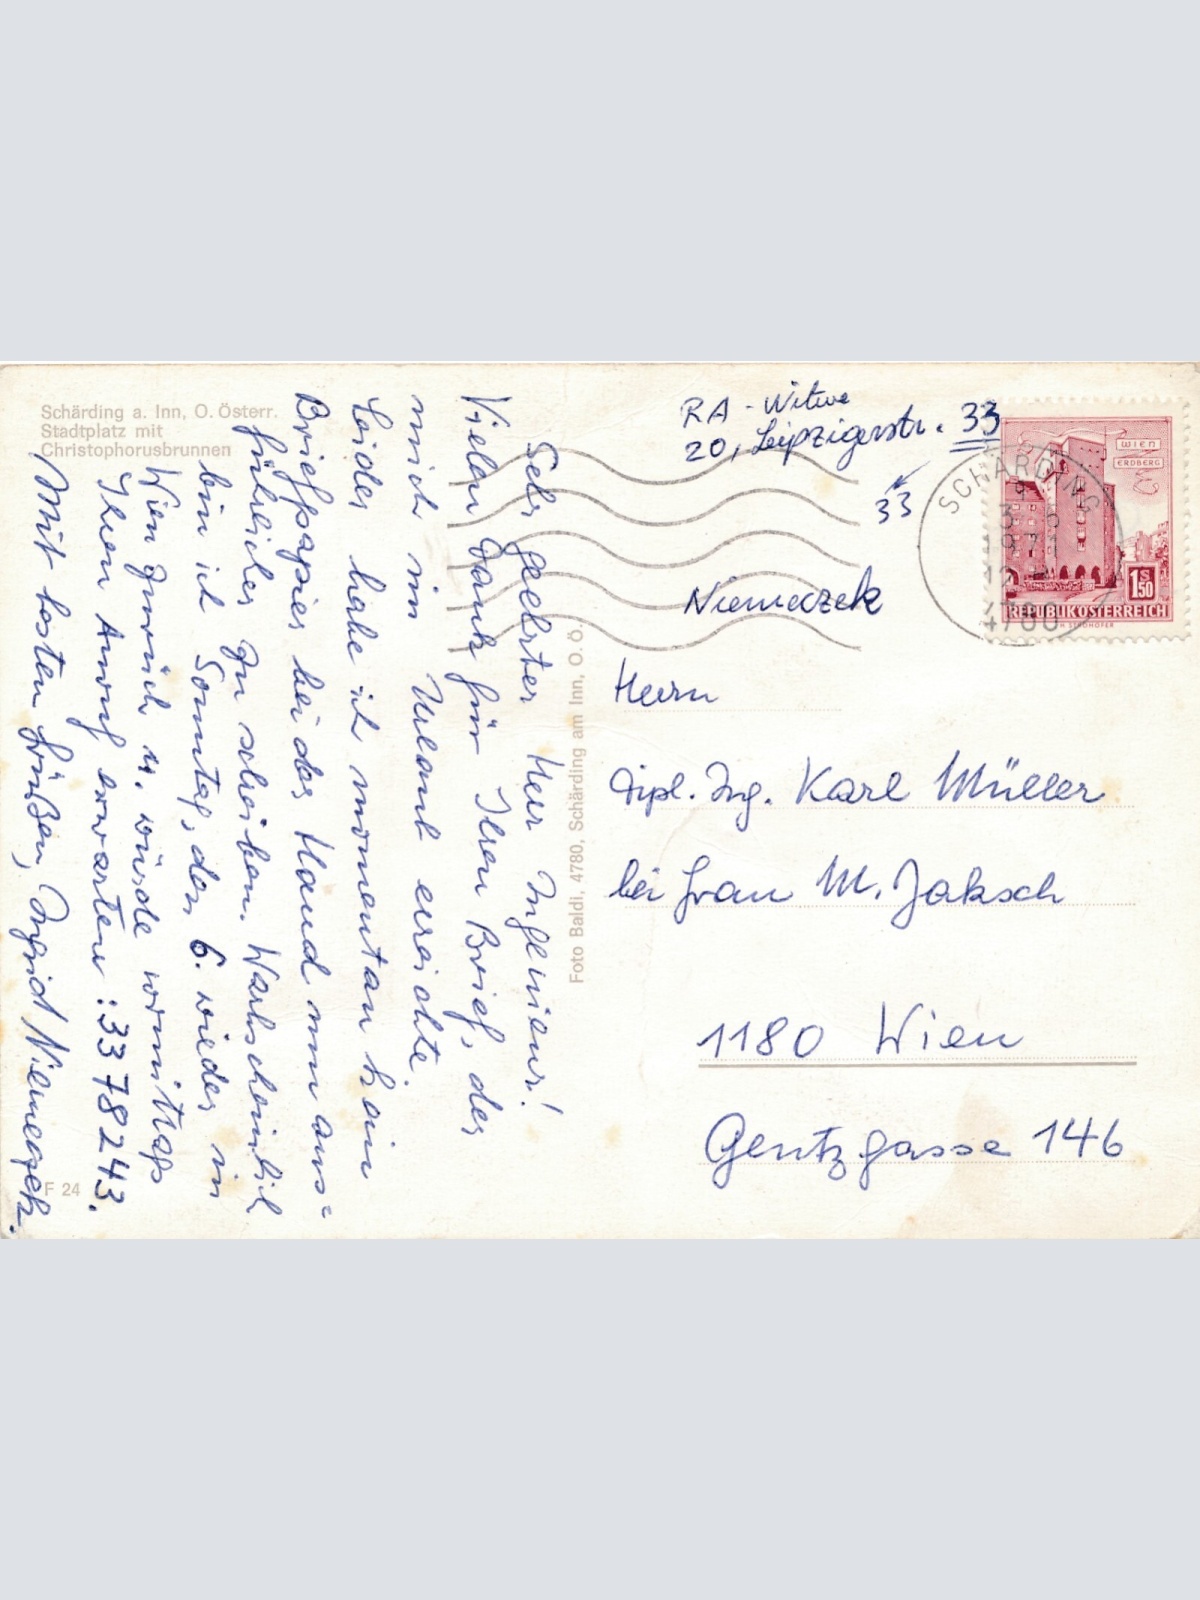 Schärding a. Inn, O. Österr.
Stadtplatz mit
Christophorusbrunnen
Sehr geehrter Herr Ingenieur!
Vielen Dank für Ihren Brief, der
mich im Urlaub erreichte.
Leider habe ich momentan kein
Briefpapier bei der Hand um aus=
führlicher zu schreiben. Warscheinlich
bin ich Sonntag, den 6. wieder in
Wien zurück u. würde vormittags
Ihren Anruf erwarten: 33 78 243.
Mit besten Grüßen, Ingrid Niemeczek.
F 24
Foto Baldi, 4780, Schärding am Inn, O. Ö.
RA - Witwe
20, Leipzigerstr. 33
33
Niemeczek
SCHÄRDING
4780
WIEN
ERDBERG
1 S 50
REPUBLIK ÖSTERREICH
Herrn
Dipl. Ing. Karl Müller
bei Frau M. Jaksch
1180 Wien
Gentzgasse 146